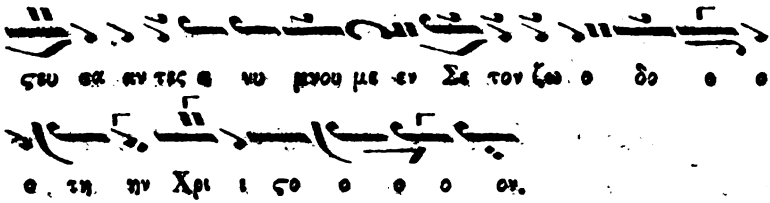 ϛευ σα αν τες α νυ μνου με εν Σε τον ζω ο δο ο ο
ο τη ην Χρι ι ϛο ο ο ο ον.